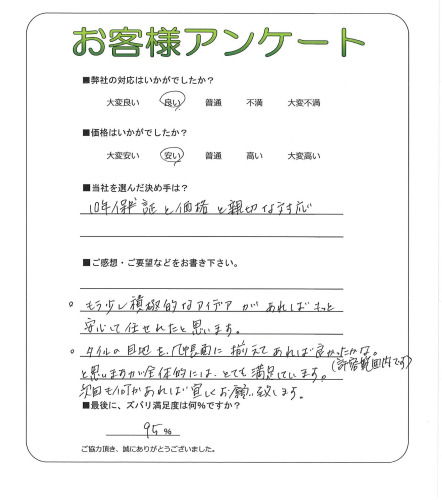 お客様アンケート
■弊社の対応はいかがでしたか？
大変良い 良い 普通 不満 大変不満
■価格はいかがでしたか？
大変安い 安い 普通 高い 大変高い
■当社を選んだ決め手は？
10年保証と価格と親切な対応
■ご感想・ご要望などをお書き下さい。
○ もう少し積極的なアイデアがあればもっと
安心して任せれたと思います。
○ タイルの目地を几帳面に揃えてあれば良かったかな。
と思いますが全体的には、とても満足しています。(許容範囲内です)
次回も何かあれば宜しくお願い致します。
■最後に、ズバリ満足度は何%ですか？
95%
ご協力頂き、誠にありがとうございました。